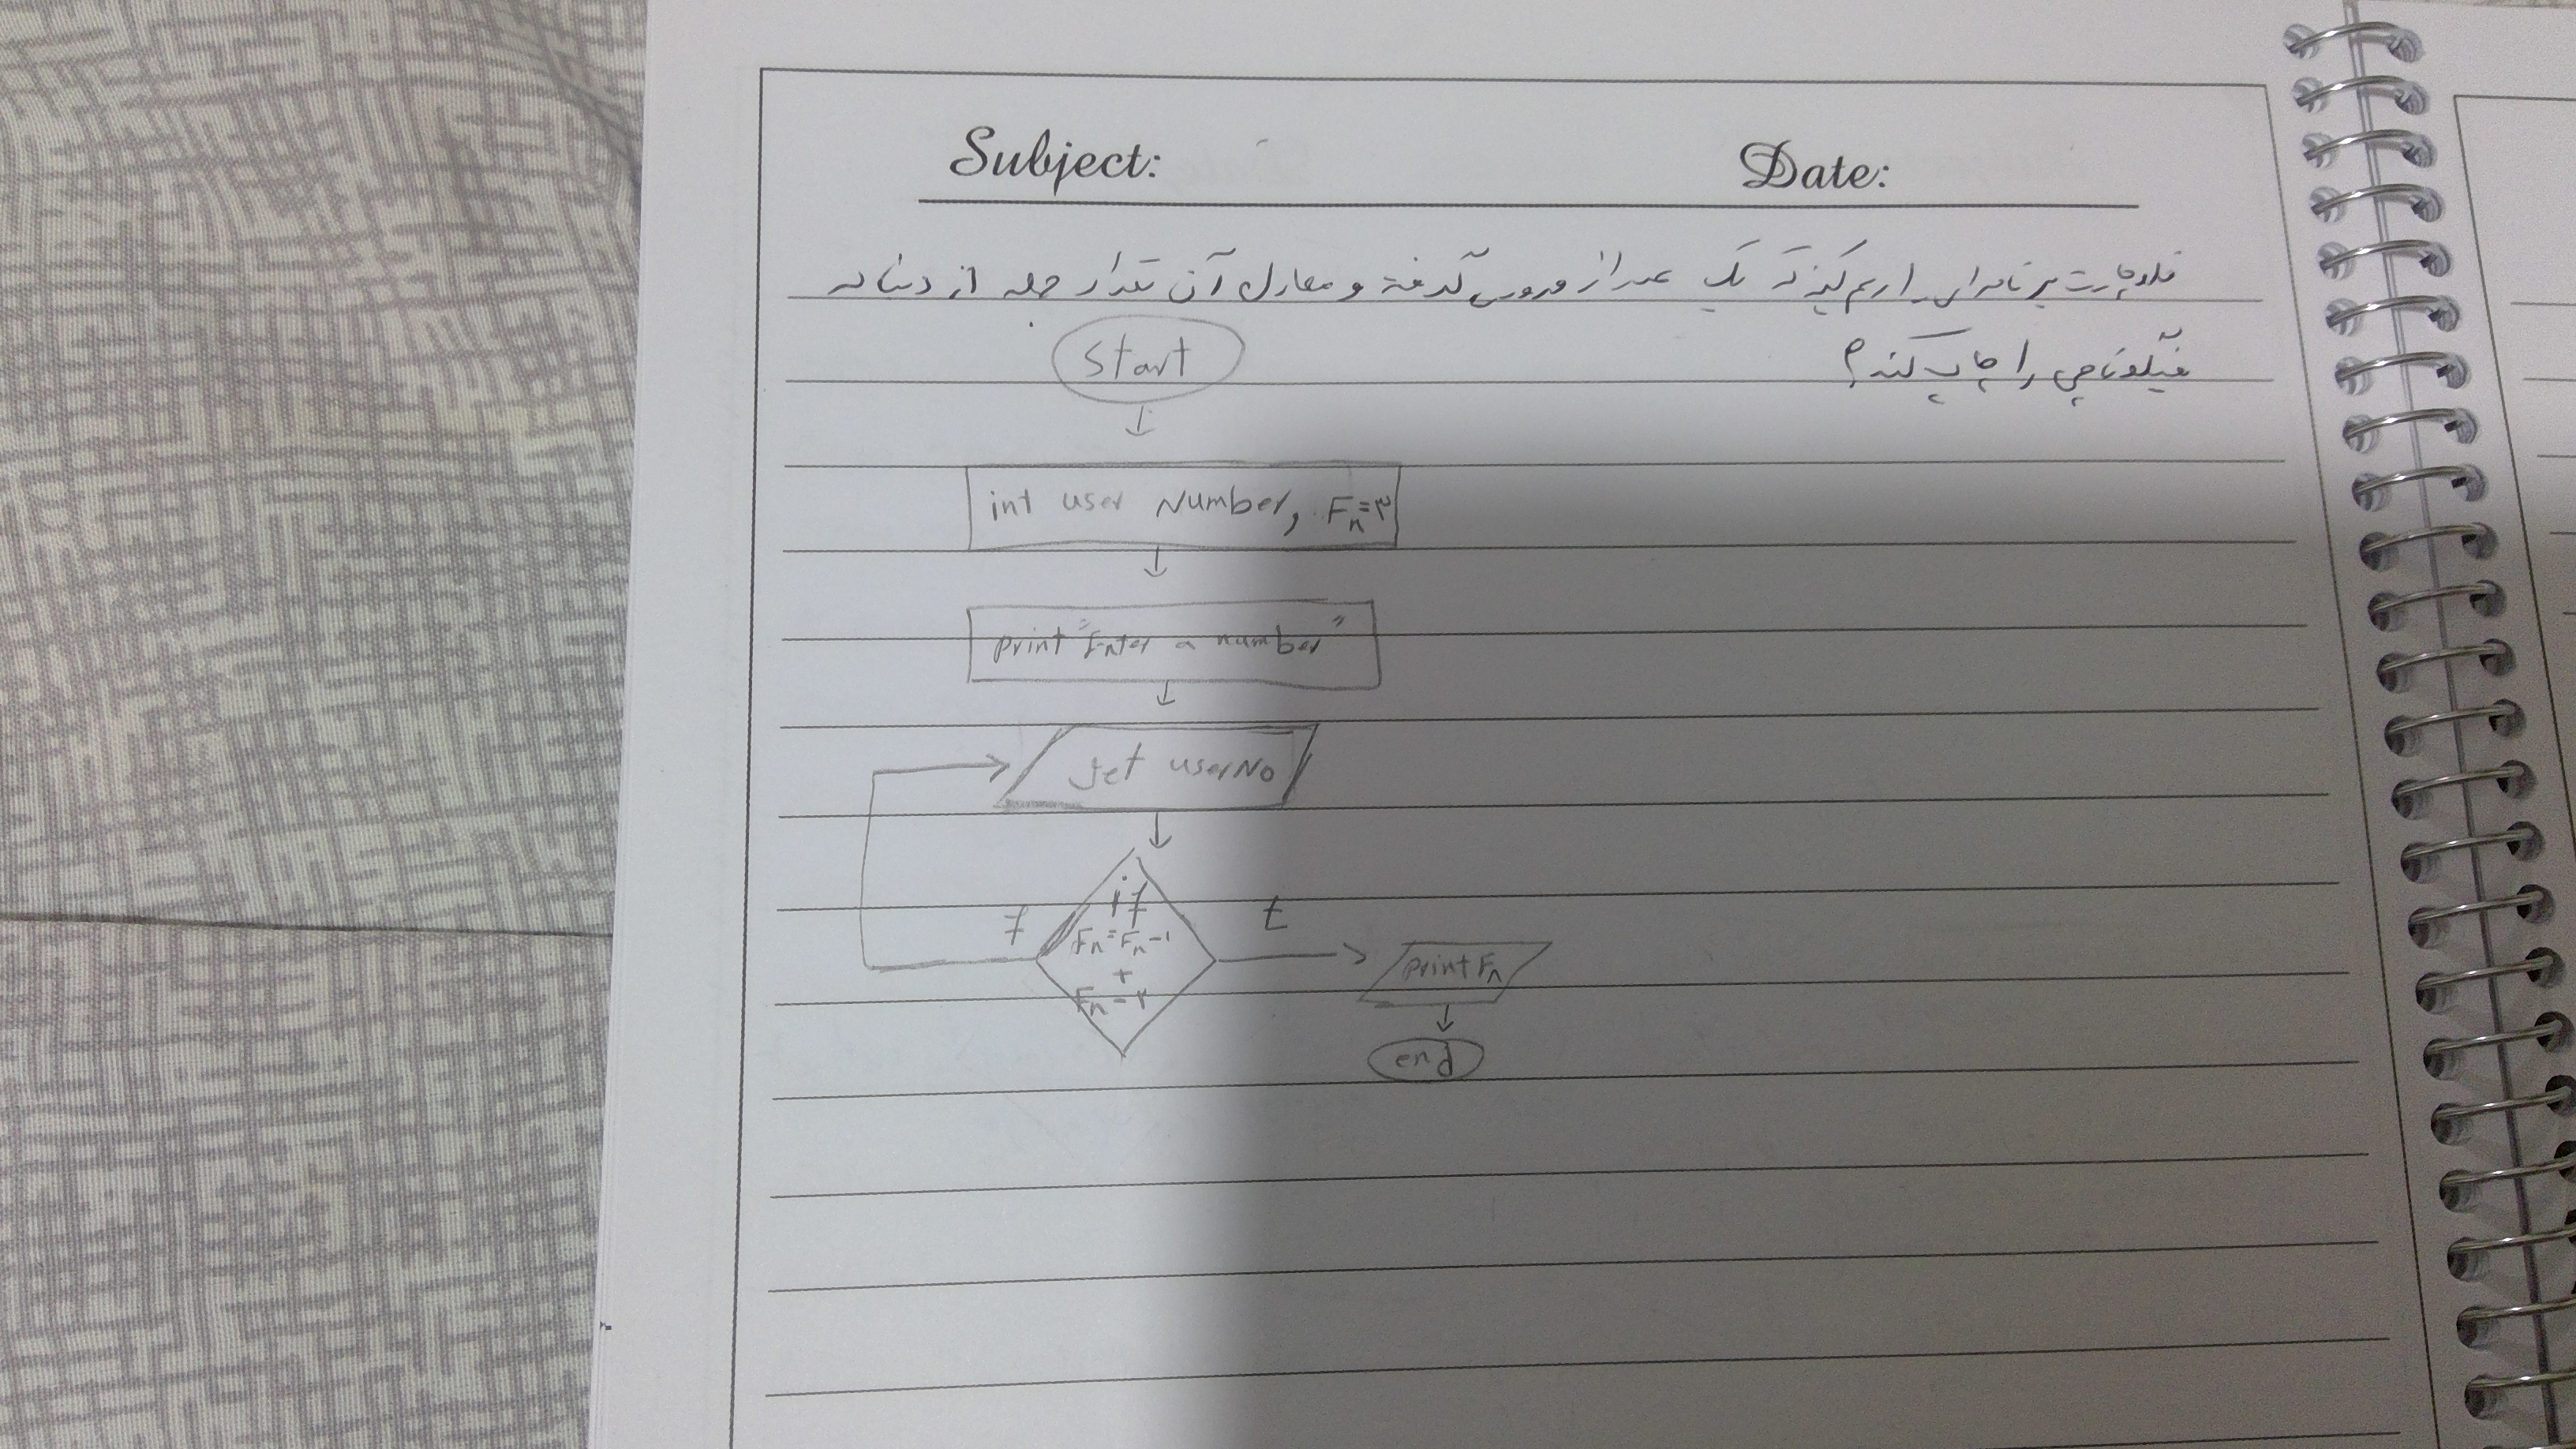 Subject: Date:
فلوچارت برنامه‌ای را رسم کنید که یک عدد از ورودی گرفته و معادل آن تعداد جمله از دنباله
فیبوناچی را چاپ کند؟
Start
int user Number, Fn=۳
print "Enter a number"
get userNo
if
f t
Fn=Fn-1
+
Fn-۲
print Fn
end